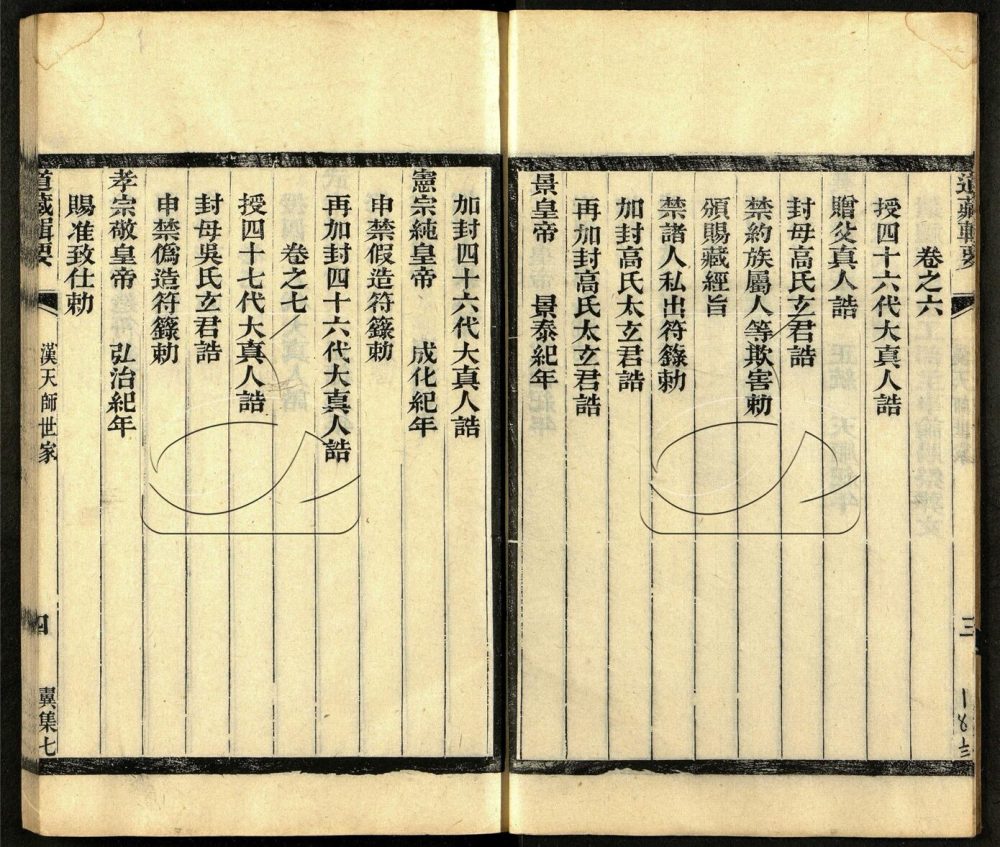 道藏輯要
三
卷之六
授四十六代大真人誥
贈父真人誥
封母高氏玄君誥
禁約族屬人等欺害勅
頒賜藏經旨
禁諸人私出符籙勅
加封高氏太玄君誥
再加封高氏太玄君誥
景皇帝 景泰紀年
加封四十六代大真人誥
憲宗純皇帝 成化紀年
申禁假造符籙勅
再加封四十六代大真人誥
卷之七
授四十七代大真人誥
封母吳氏玄君誥
申禁僞造符籙勅
孝宗敬皇帝 弘治紀年
賜准致仕勅
道藏輯要 漢天師世家 四 翼集七